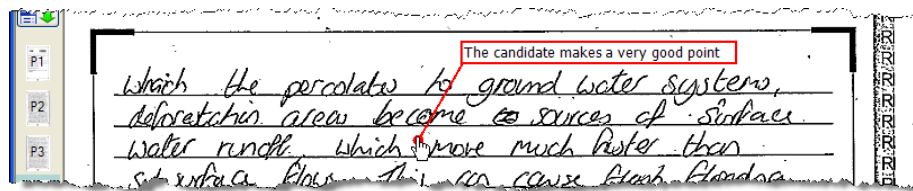 The candidate makes a very good point
P1
which the percolates to ground water systems,
deforestatchin areas become to sources of surface
P2
water runoff. which move much faster than
P3
subsurface flows. This can cause flash flooding
R
R
R
R
R
R